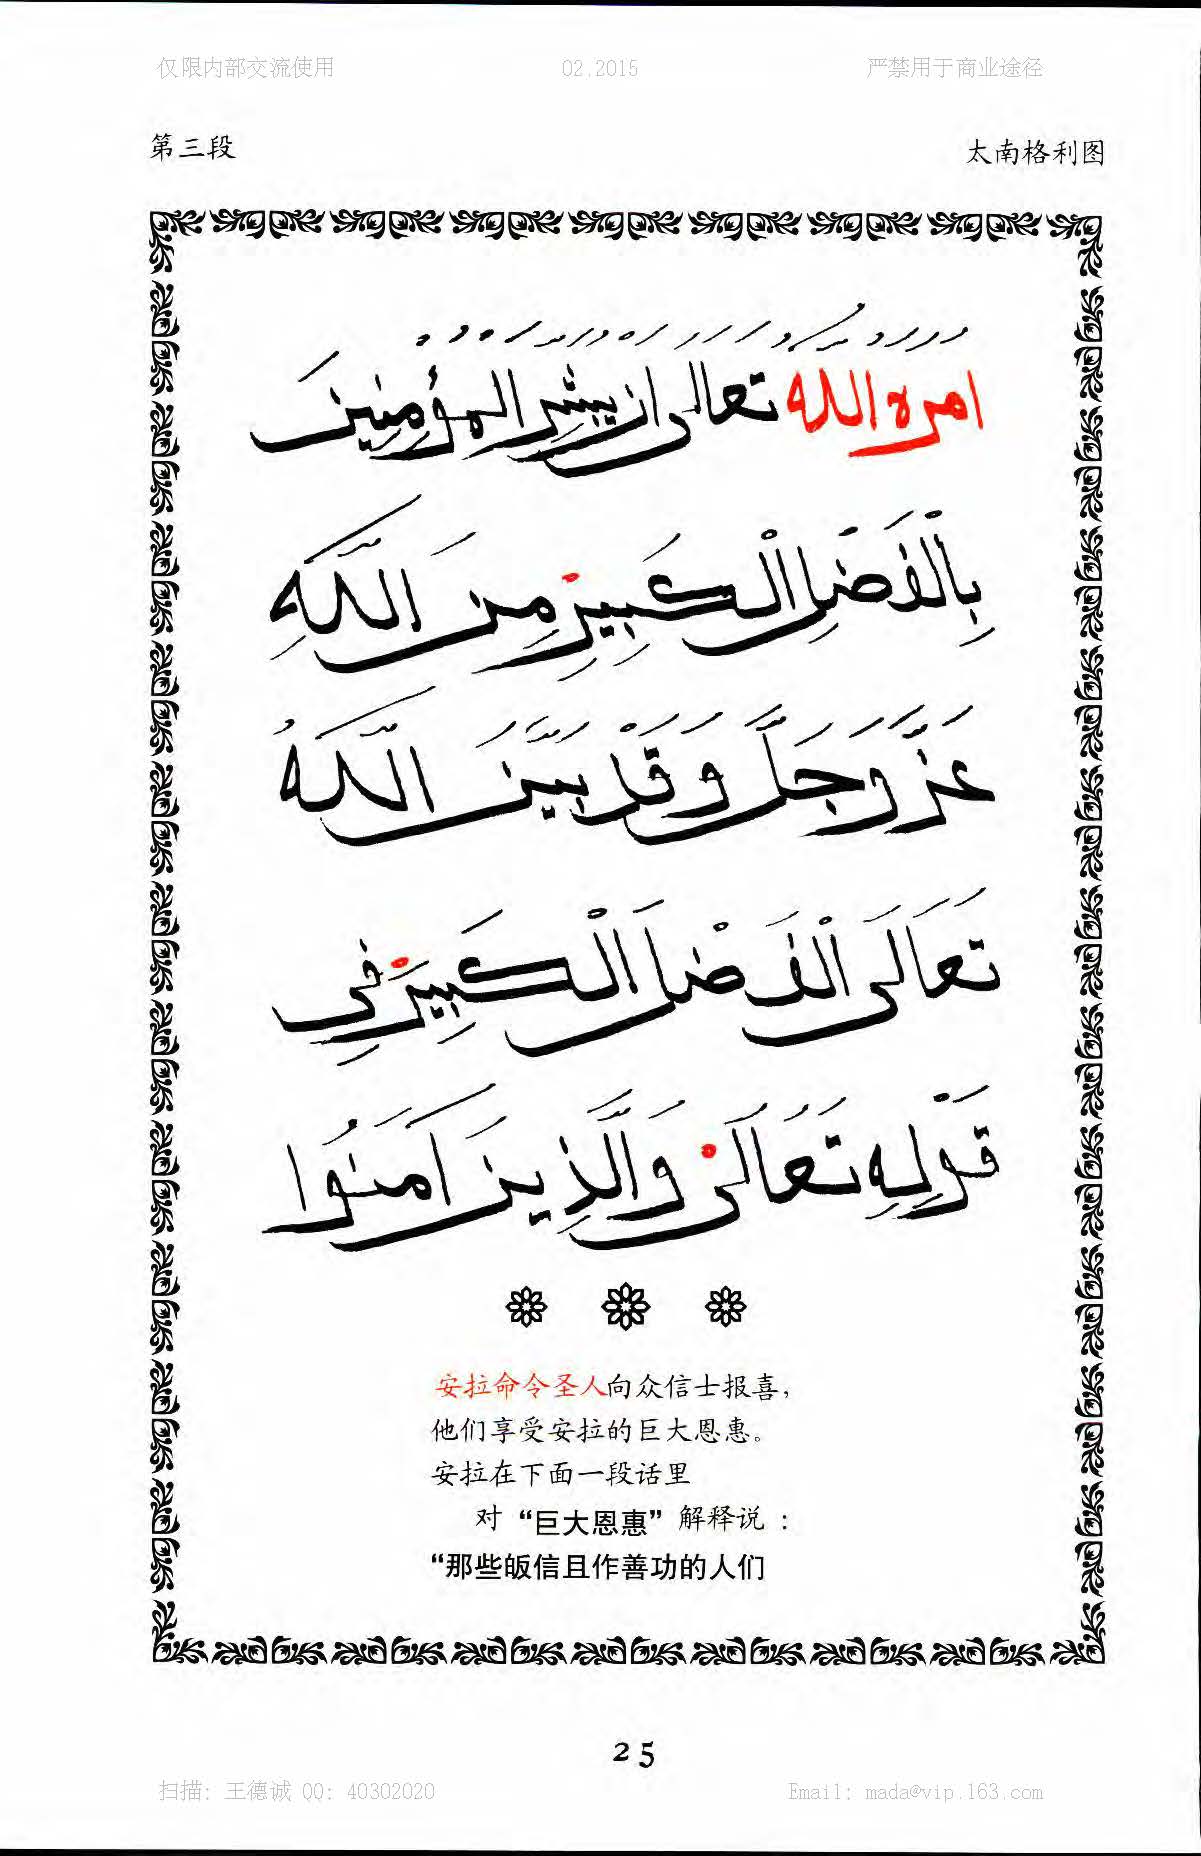 仅限内部交流使用 02.2015 严禁用于商业途径
第三段 太南格利图
امره الله تعالى ان يبشر المؤمنين
بِالْفَضْلِ الْكَبِيرِ مِنَ اللَّهِ
عَزَّ وَجَلَّ وَقَدْ بَيَّنَ اللَّهُ
تَعَالَى الْفَضْلَ الْكَبِيرَ فِي
قَوْلِهِ تَعَالَى وَالَّذِينَ آمَنُوا
安拉命令圣人向众信士报喜，
他们享受安拉的巨大恩惠。
安拉在下面一段话里
对“巨大恩惠”解释说：
“那些皈信且作善功的人们
25
扫描: 王德诚 QQ: 40302020 Email: mada@vip.163.com